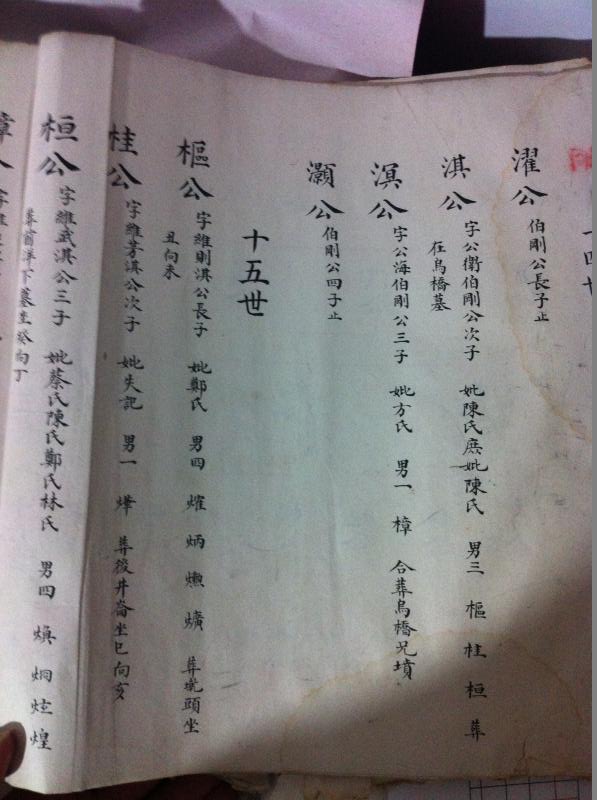 十四世
濯公 伯剛公長子止
淇公 字公衛伯剛公次子 妣陳氏庶妣陳氏 男三 樞 桂 桓 葬
在烏橋墓
溟公 字公海伯剛公三子 妣方氏 男一 樟 合葬烏橋兄墳
灝公 伯剛公四子止
十五世
樞公 字維則淇公長子 妣鄭氏 男四 熣 炳 爋 爌 葬坑頭坐
丑向未
桂公 字維芳淇公次子 妣失記 男一 燁 葬後井崙坐巳向亥
桓公 字維武淇公三子 妣蔡氏陳氏鄭氏林氏 男四 煥 炯 炫 煌
坐癸向丁